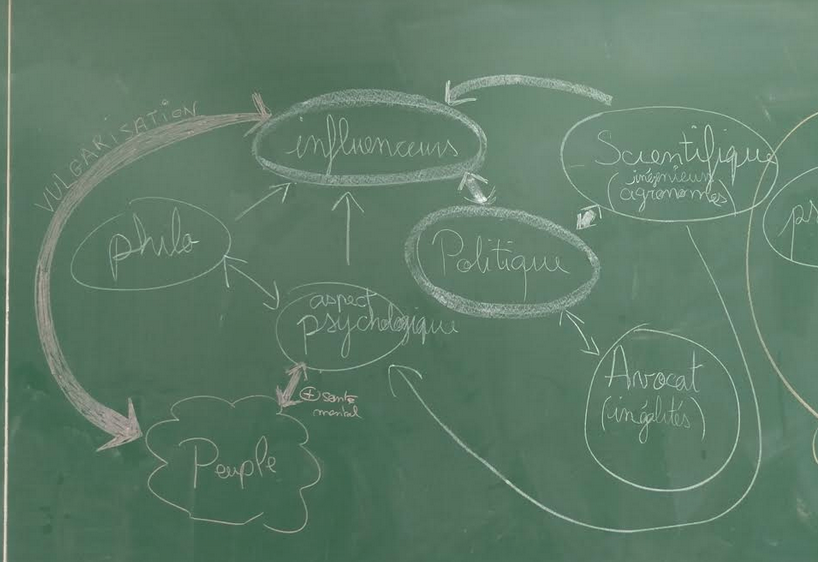 VULGARISATION
influenceurs
Scientifique
(ingénieurs
agronomes)
philo
Politique
aspect
psychologique
Avocat
(inégalités)
⊕ santé
mental
Peuple